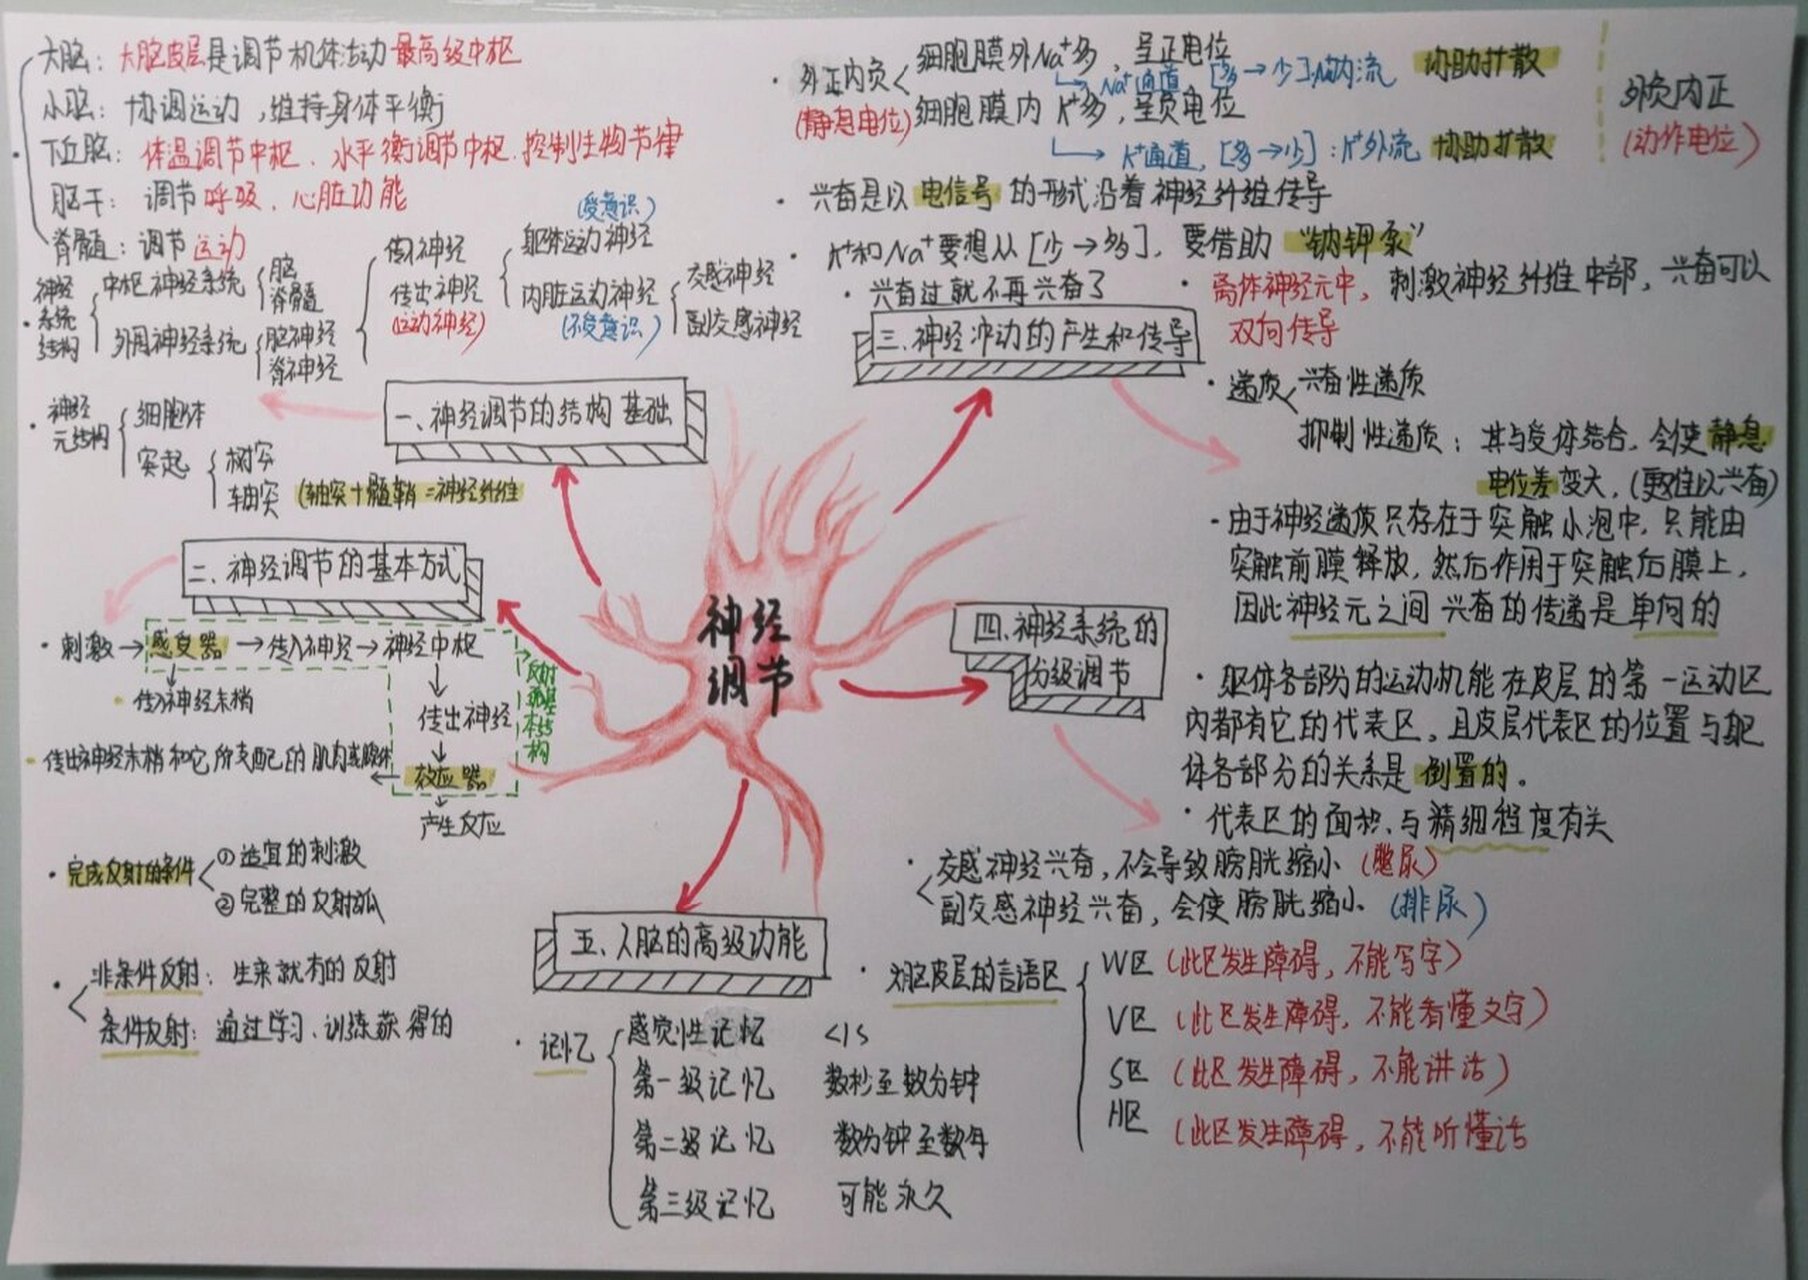 大脑：大脑皮层是调节机体活动最高级中枢
小脑：协调运动，维持身体平衡
下丘脑：体温调节中枢、水平衡调节中枢、控制生物节律
脑干：调节呼吸、心脏功能
脊髓：调节运动
神经系统结构
中枢神经系统
脑
脊髓
外周神经系统
脑神经
脊神经
传入神经
传出神经
(运动神经)
(受意识)
躯体运动神经
内脏运动神经
(不受意识)
交感神经
副交感神经
神经元结构
细胞体
突起
树突
轴突
(轴突+髓鞘=神经纤维
一、神经调节的结构基础
二、神经调节的基本方式
刺激→感受器→传入神经→神经中枢
↓
传入神经末梢
↓
传出神经
↓
传出神经末梢和它所支配的肌肉或腺体←效应器
↓
产生反应
反射弧基本结构
完成反射的条件
①适宜的刺激
②完整的反射弧
非条件反射：生来就有的反射
条件反射：通过学习、训练获得的
神经
调节
· 外正内负
(静息电位)
细胞膜外Na⁺多，呈正电位
Na⁺通道 [多→少]:Na⁺内流 协助扩散
细胞膜内K⁺多，呈负电位
K⁺通道，[多→少]：K⁺外流 协助扩散
外负内正
(动作电位)
· 兴奋是以电信号的形式沿着神经纤维传导
· K⁺和Na⁺要想从[少→多]，要借助“钠钾泵”
· 兴奋过就不再兴奋了
· 离体神经元中，刺激神经纤维中部，兴奋可以
双向传导
三、神经冲动的产生和传导
· 递质
兴奋性递质
抑制性递质：其与受体结合，会使静息
电位差变大，(更难以兴奋)
· 由于神经递质只存在于突触小泡中，只能由
突触前膜释放，然后作用于突触后膜上，
因此神经元之间兴奋的传递是单向的
四、神经系统的
分级调节
· 躯体各部分的运动机能在皮层的第一运动区
内都有它的代表区，且皮层代表区的位置与躯
体各部分的关系是倒置的。
· 代表区的面积、与精细程度有关
· 交感神经兴奋，不会导致膀胱缩小(憋尿)
副交感神经兴奋，会使膀胱缩小(排尿)
五、人脑的高级功能
· 大脑皮层的言语区
W区(此区发生障碍，不能写字)
V区(此区发生障碍，不能看懂文字)
S区(此区发生障碍，不能讲话)
H区(此区发生障碍，不能听懂话
· 记忆
感觉性记忆 <1s
第一级记忆 数秒至数分钟
第二级记忆 数分钟至数年
第三级记忆 可能永久